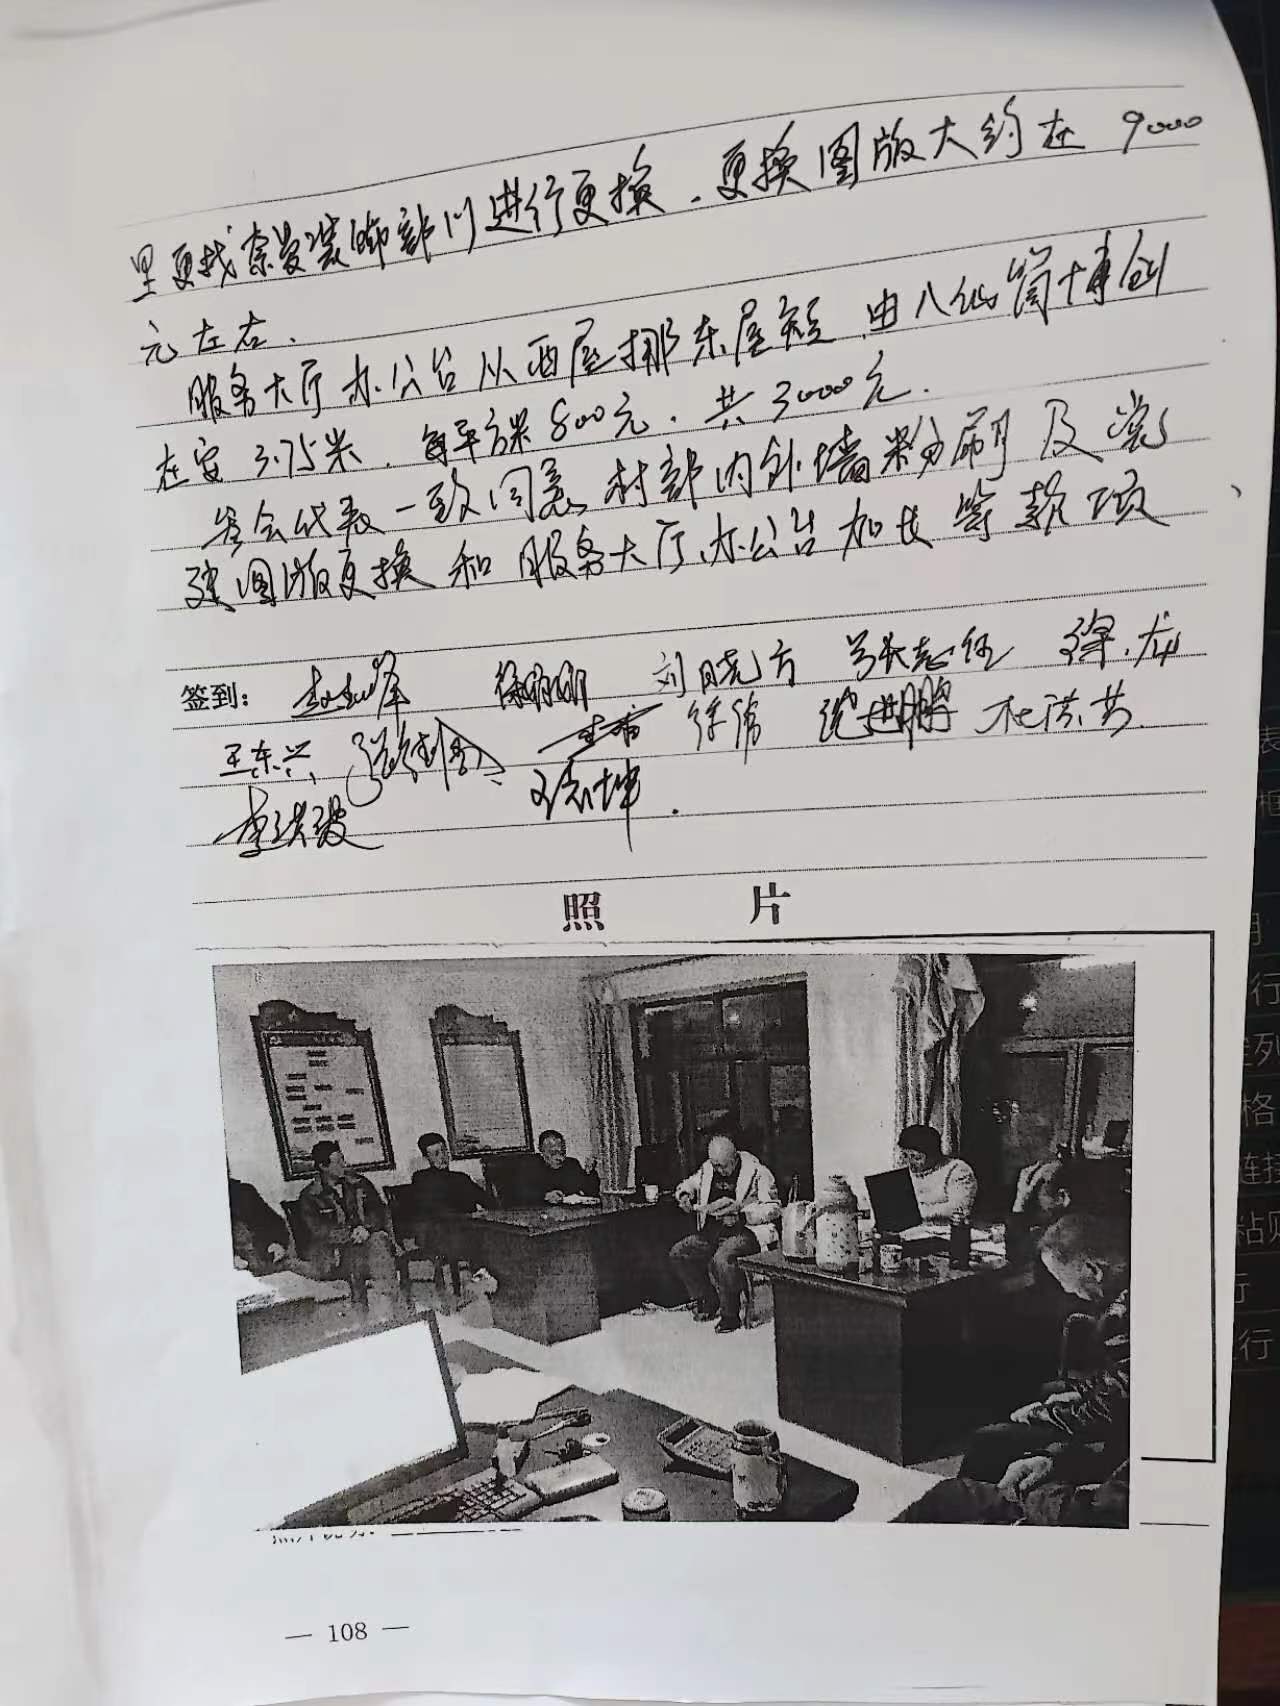 里更找奈曼装饰部门进行更换.更换图版大约在 9000
元左右.
服务大厅办公台从西屋挪东屋短,由八仙筒博创
在定 3.75米.每平方米800元.共3000元.
参会代表一致同意村部内外墙粉刷及党
建图版更换和服务大厅办公台加长等款项
签到: 刘晓方 张志 徐龙
王东兴 徐伟 沈进鹏 杜洪芳.
李洪波 志坤.
照 片
— 108 —
行
列
格
链接
行
行